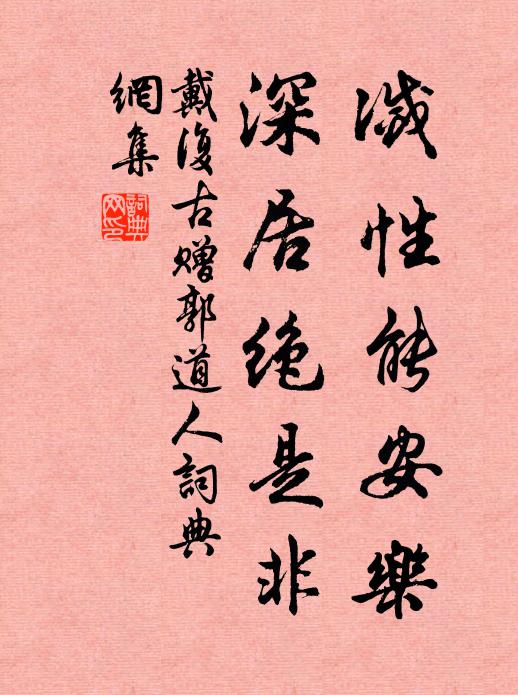 滅性能安樂
深居絕是非
戴復古贈郭道人詞典
網集
詞典網印